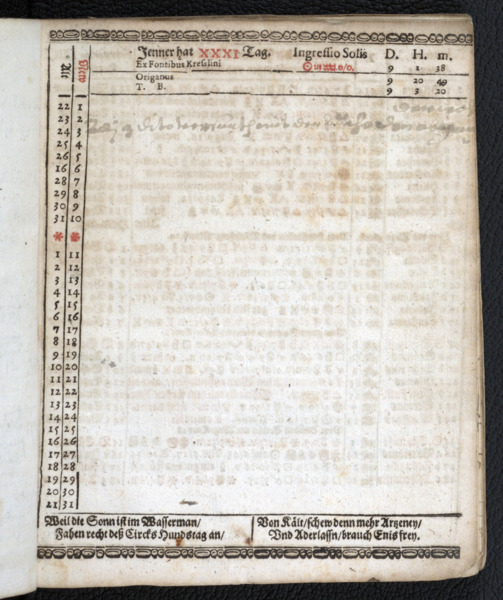 Jenner hat XXXI Tag. Ingressio Solis D. H. m.
Ex Fontibus Kreslini 9 1 38
Origanus 9 20 40
T. B. 9 3 20
22 1
23 2
24 3
25 4
26 5
16 6
28 7
29 8
30 9
31 10
* *
1 11
2 12
3 13
4 14
5 15
6 16
7 17
8 18
9 19
10 20
11 21
12 22
13 23
14 24
15 25
16 26
17 27
18 28
19 29
20 30
21 31
Weil die Sonn ist im Wasserman/
Fahen recht deß Circks Hundstag an/
Von Kält/schew denn mehr Artzeney/
Vnd Aderlassn/brauch Enis frey.